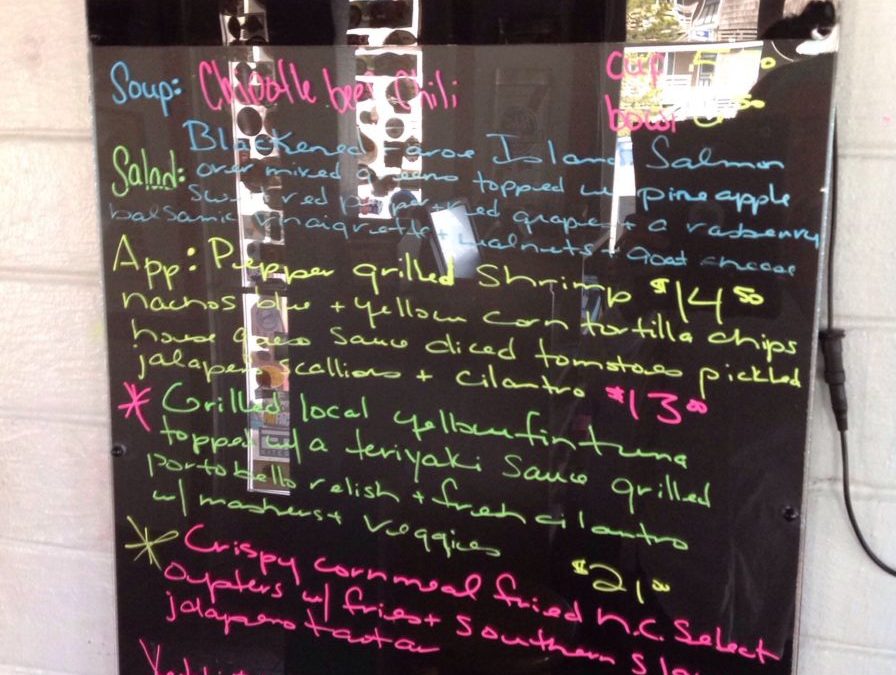 Soup: Chipotle beef Chili cup 5.50
bowl 50
Blackened Faroe Island Salmon
Salad: over mixed greens topped w/ pineapple
sweet red pepper + red grapes + a rasberry
balsamic vinaigrette + walnuts + goat cheese
App: Pepper grilled Shrimp $14.50
nachos blue + yellow corn tortilla chips
house queso sauce diced tomatoes pickled
jalapeno scallions + cilantro $13.00
* Grilled local yellowfin tuna
topped w/ a teriyaki sauce grilled
portobello relish + fresh cilantro
w/ mashers + veggies $21.00
* Crispy cornmeal fried N.C. Select
oysters w/ fries + Southern
jalapeno tartar